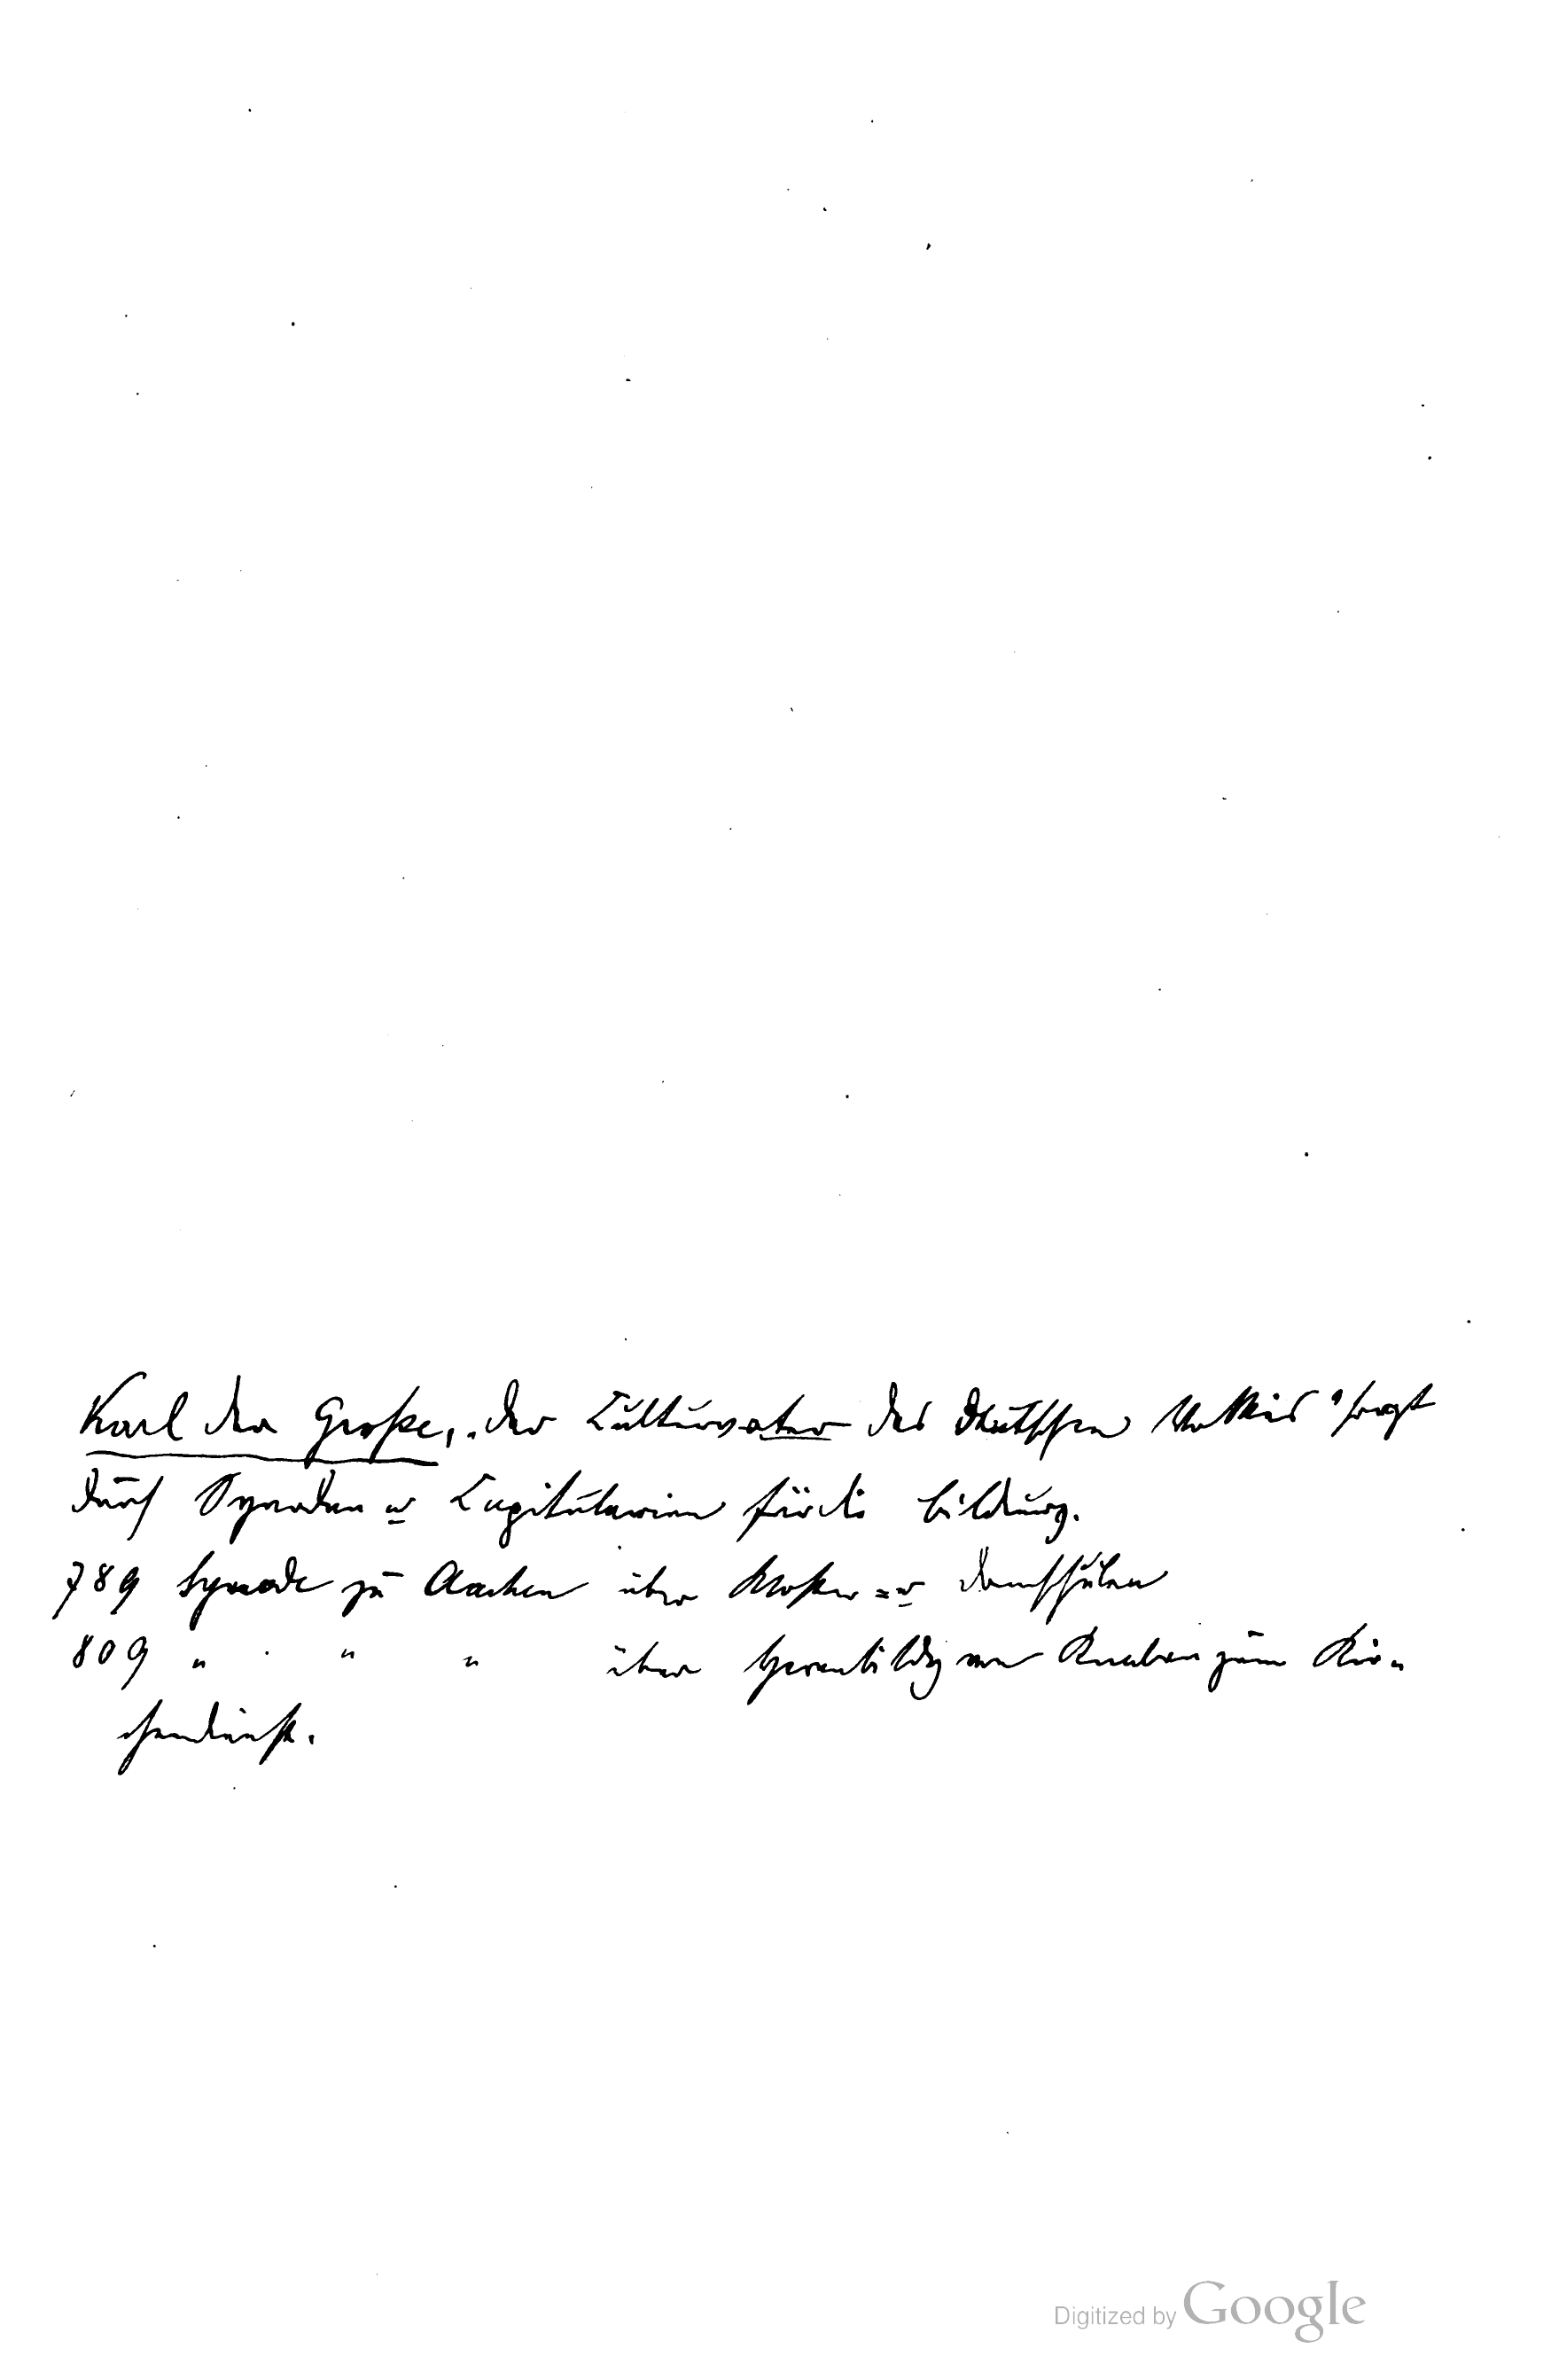 Karl der Große, „der Culturvater des deutschen Volkes“ sorgt
durch Synoden u Capitularien für die Bildung.
789 Synode zu Aachen über Kloster= u Domschulen
809 " " " über Heranbildg von Knaben zum Kir-
chendienst.
Digitized by Google